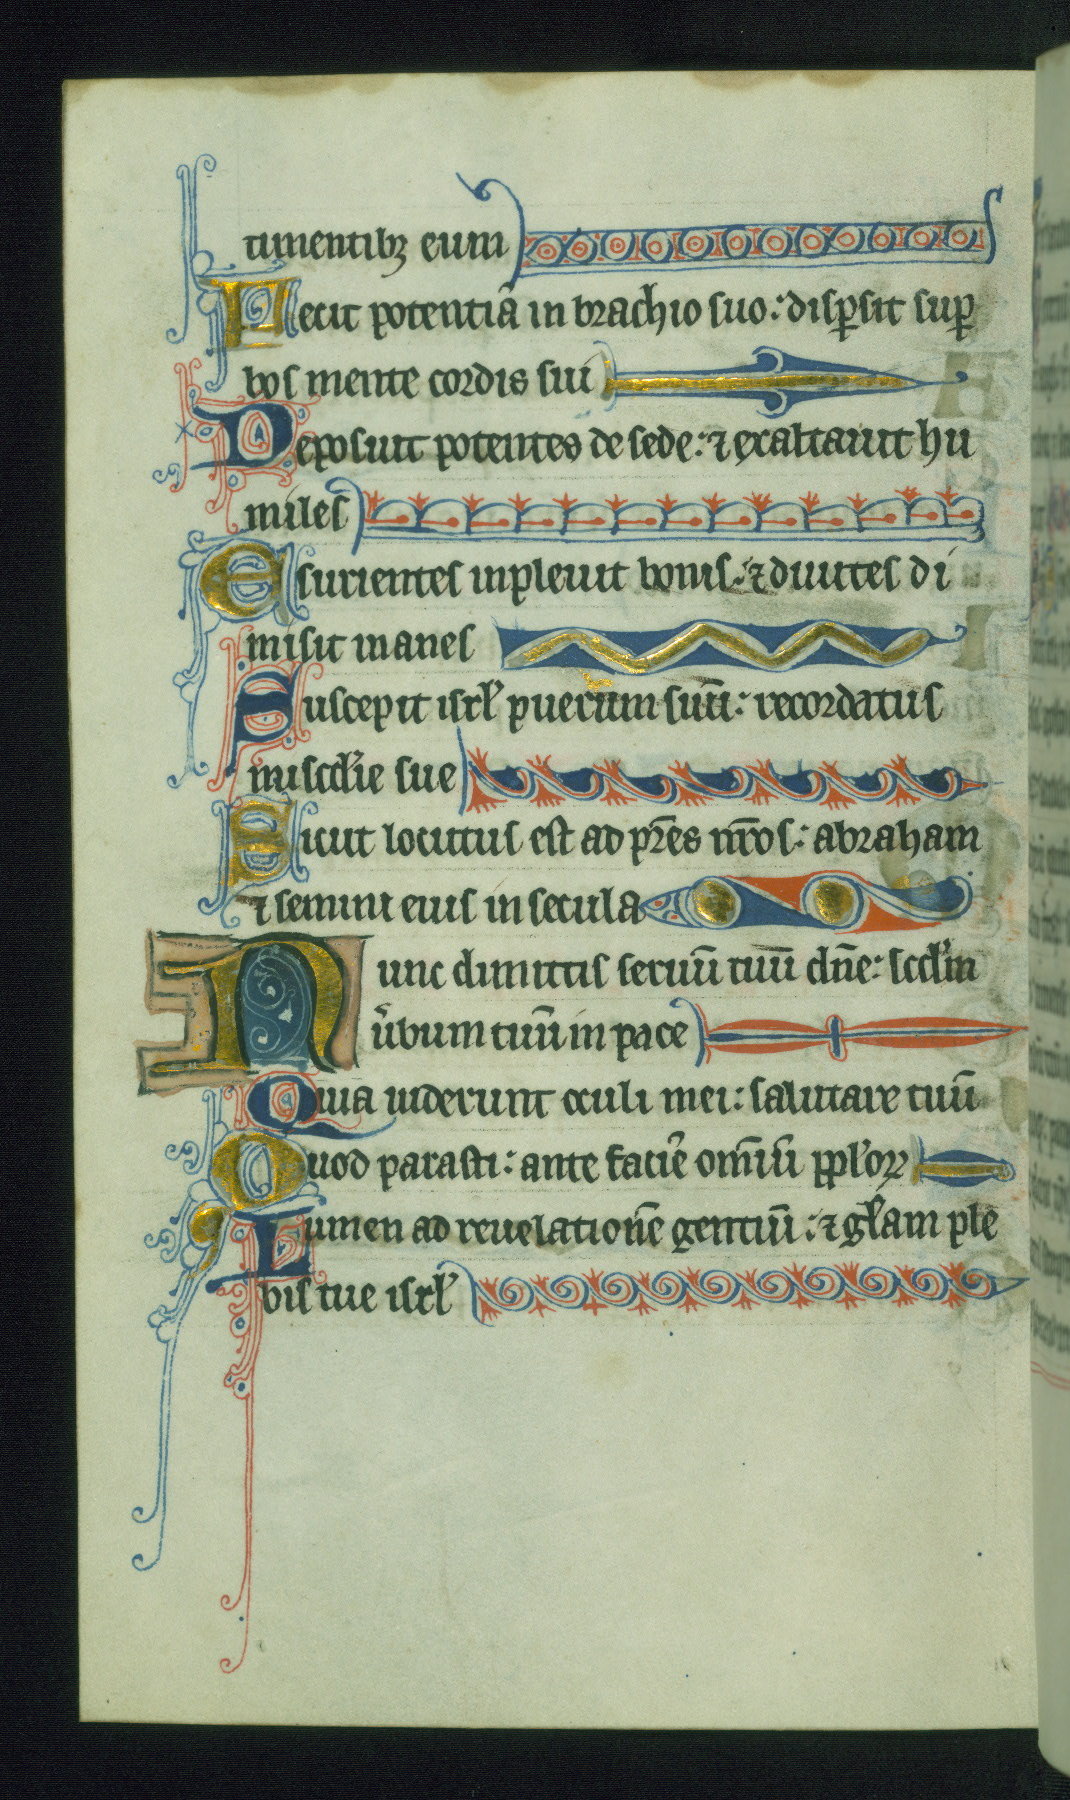 timentibꝫ eum
Fecit potentiā in brachio suo: disꝑsit suꝑ
bos mente cordis sui
Deposuit potentes de sede: ⁊ exaltauit hu
miles
Esurientes inpleuit bonis: ⁊ diuites di
misit inanes
Suscepit isrl̕ puerum suū: recordatus
miscd̕ie sue
Sicut locutus est ad p̄res nr̄os: abraham
⁊ semini eius in secula
Nunc dimittis seruū tuū dn̄e: scd̕m
u̕bum tuū in pace
Quia uiderunt oculi mei: salutare tuū
Quod parasti: ante faciē om̄iū ppl̕oꝝ
Lumen ad reuelationē gentiū: ⁊ gl̕am ple
bis tue isrl̕